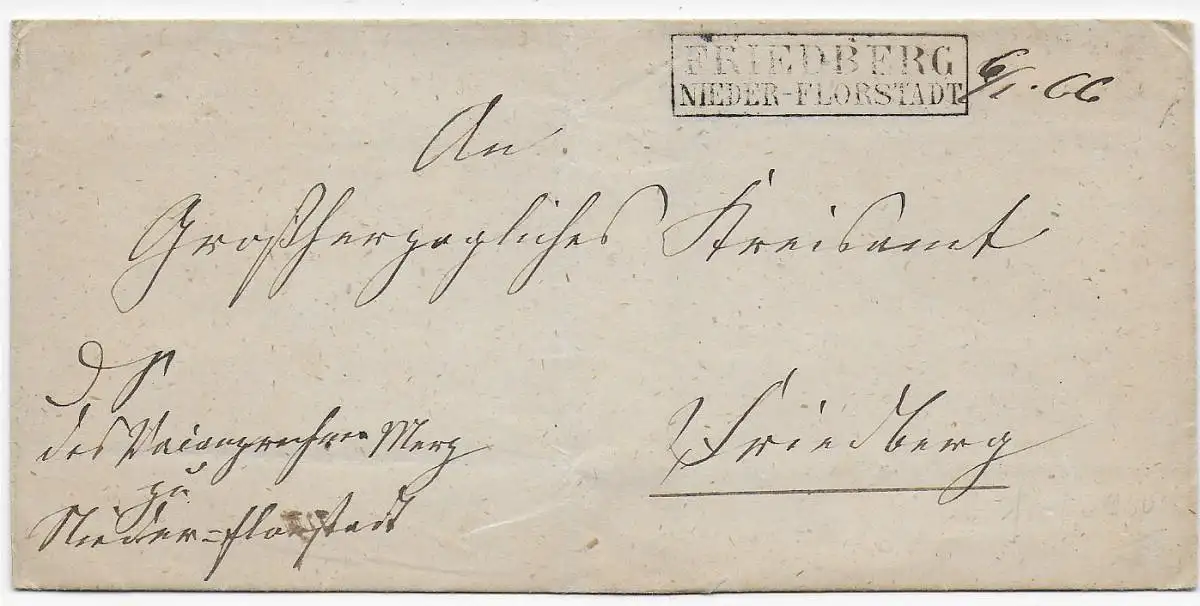 FRIEDBERG
NIEDER-FLORSTADT
6/1. 66
An
Großherzogliches Kreisamt
Friedberg
D S
des Merz
zu
Nieder-Florstadt